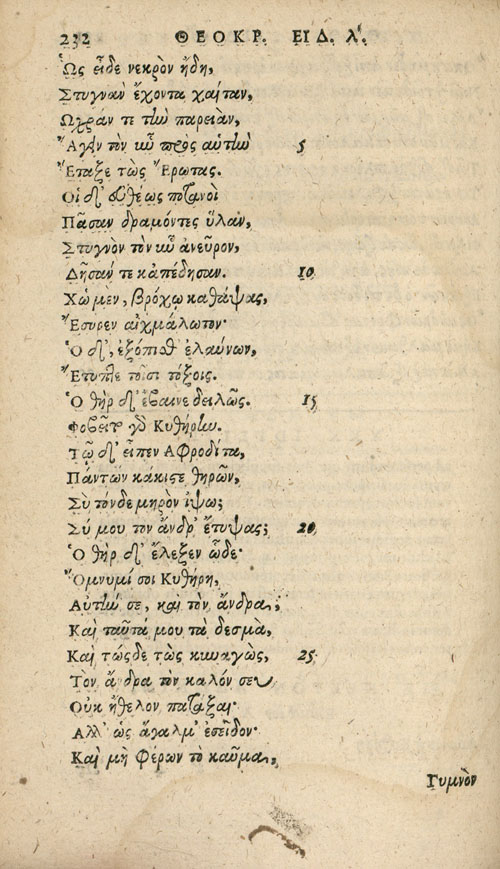 232 ΘΕΟΚΡ. ΕΙΔ. λ'.
Ὡς εἶδε νεκρὸν ἤδη,
Στυγνὰν ἔχοντα χαίταν,
Ὠχράν τε τὴν παρειὰν,
Ἄγειν τὸν ὗν πρὸς αὐτὴν 5
Ἔταξε τὼς Ἔρωτας.
Οἱ δ', εὐθέως ποτανοὶ
Πᾶσαν δραμόντες ὕλαν,
Στυγνὸν τὸν ὗν ἀνεῦρον,
Δῆσάν τε κἀπέδησαν. 10
Χὠ μὲν, βρόχῳ καθάψας,
Ἔσυρεν αἰχμάλωτον·
Ὁ δ', ἐξόπισθ' ἐλαύνων,
Ἔτυπτε τοῖσι τόξοις.
Ὁ θὴρ δ' ἔβαινε δειλῶς. 15
Φοβεῖτο γὸ Κυθήρην.
Τῷ δ' εἶπεν Ἀφροδίτα,
Πάντων κάκιστε θηρῶν,
Σὺ τόνδε μηρὸν ἴψω;
Σύ μου τὸν ἄνδρ' ἔτυψας; 20
Ὁ θὴρ δ' ἔλεξεν ὧδε·
Ὄμνυμί σοι Κυθήρη,
Αὐτήν σε, καὶ τὸν ἄνδρα,
Καὶ ταῦτά μου τὰ δεσμὰ,
Καὶ τώςδε τὼς κυναγὼς, 25
Τὸν ἄνδρα τὸν καλόν σευ
Οὐκ ἤθελον πατάξαι·
Ἀλλ' ὡς ἄγαλμ' ἐσεῖδον·
Καὶ μὴ φέρων τὸ καῦμα,
Γυμνὸν